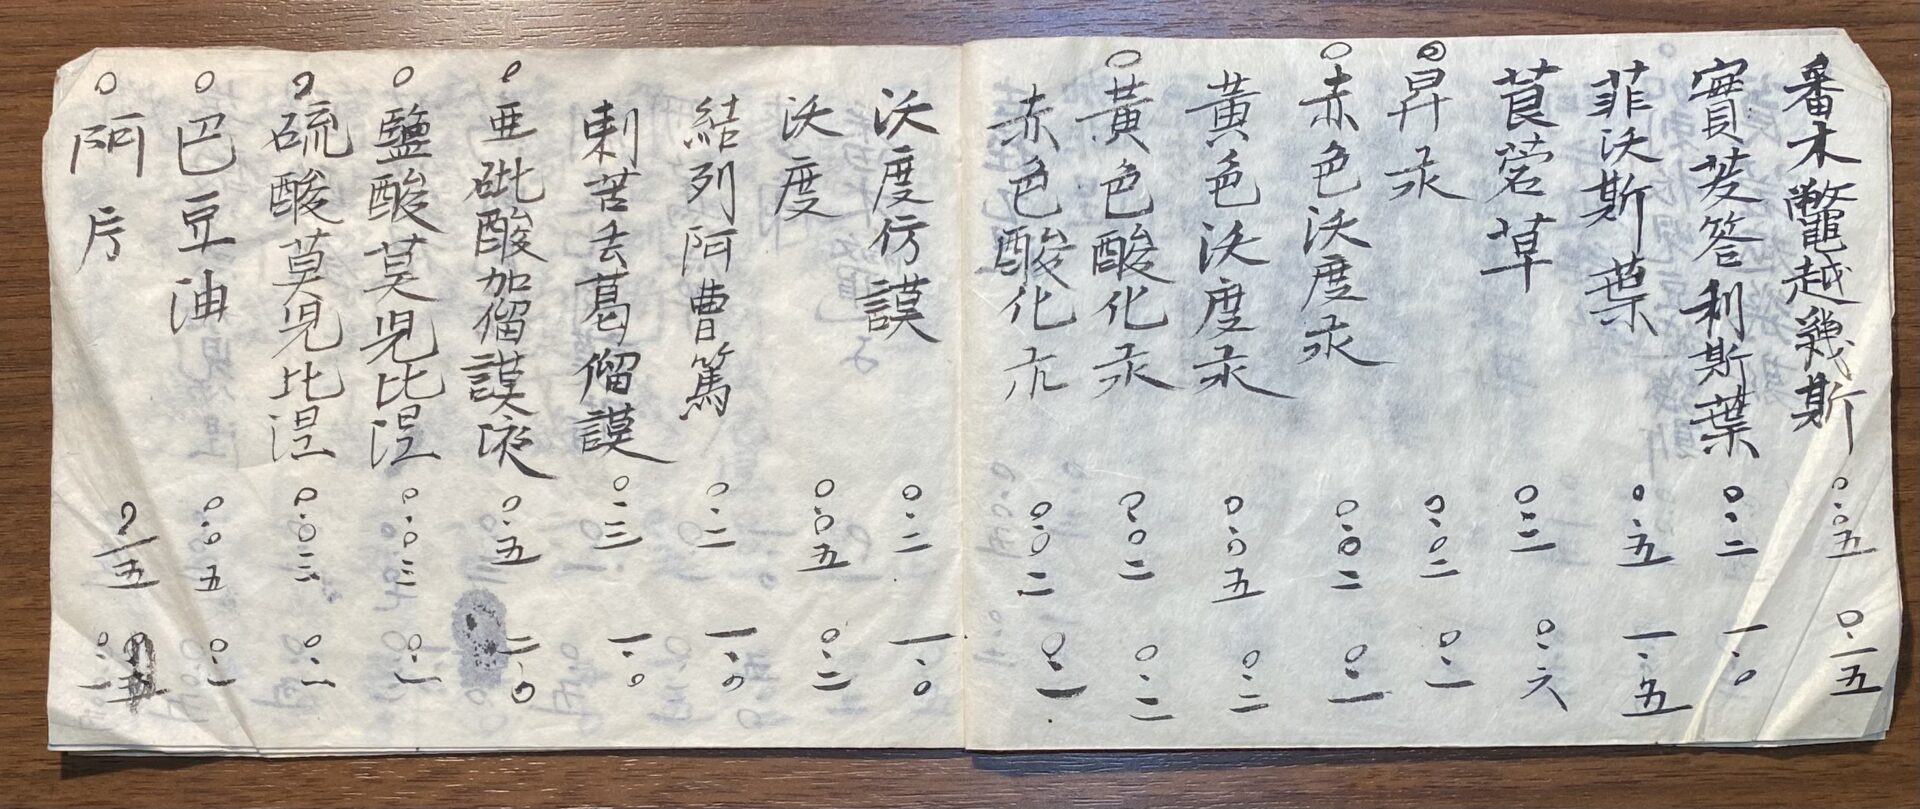 番木鼈越幾斯 〇・〇五 〇・一五
實芰答利斯葉 〇・二 一・〇
菲沃斯葉 〇・五 一・五
莨菪草 〇・二 〇・六
〇昇汞 〇・〇二 〇・一
〇赤色沃度汞 〇・〇二 〇・一
黃色沃度汞 〇・〇五 〇・二
〇黃色酸化汞 〇・〇二 〇・二
赤色酸化汞 〇・〇二 〇・一
沃度仿謨 〇・二 一・〇
沃度 〇・〇五 〇・二
結列阿曹篤 〇・二 一・〇
剌苦去葛僂謨 〇・三 一・〇
〇亜砒酸加僂謨液 〇・五 二・〇
〇鹽酸莫児比涅 〇・〇三 〇・一
〇硫酸莫児比涅 〇・〇三 〇・一
〇巴豆油 〇・〇五 〇・一
〇阿片 〇・一五